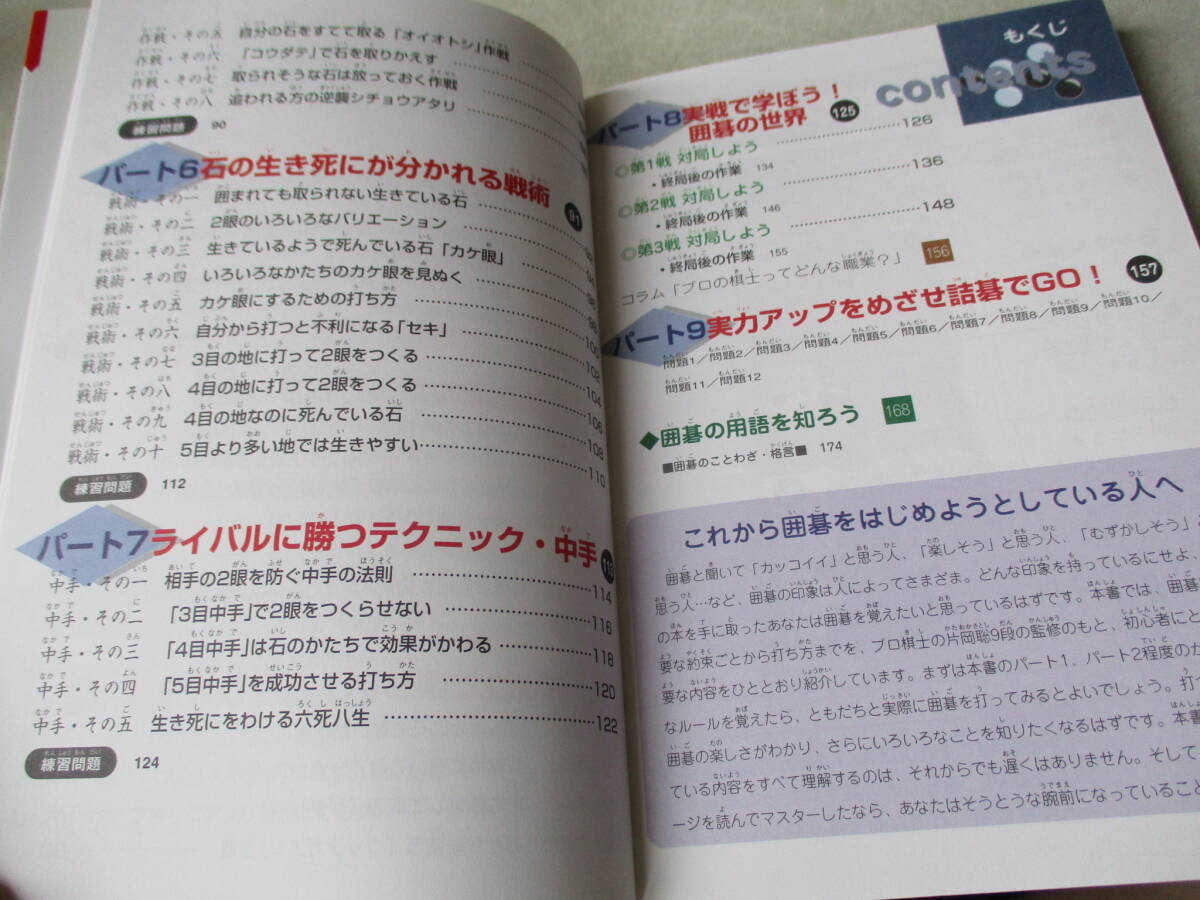 作戦・その五 自分の石をすてて取る「オイオトシ」作戦
作戦・その六 「コウダテ」で石を取りかえす
作戦・その七 取られそうな石は放っておく作戦
作戦・その八 追われる方の逆襲シチョウアタリ
練習問題 90
パート6石の生き死にが分かれる戦術 91
戦術・その一 囲まれても取られない生きている石
戦術・その二 2眼のいろいろなバリエーション
戦術・その三 生きているようで死んでいる石「カケ眼」
戦術・その四 いろいろなかたちのカケ眼を見ぬく
戦術・その五 カケ眼にするための打ち方
戦術・その六 自分から打つと不利になる「セキ」 100
戦術・その七 3目の地に打って2眼をつくる 102
戦術・その八 4目の地に打って2眼をつくる 104
戦術・その九 4目の地なのに死んでいる石 106
戦術・その十 5目より多い地では生きやすい 108
110
練習問題 112
パート7ライバルに勝つテクニック・中手 113
中手・その一 相手の2眼を防ぐ中手の法則 114
中手・その二 「3目中手」で2眼をつくらせない 116
中手・その三 「4目中手」は石のかたちで効果がかわる 118
中手・その四 「5目中手」を成功させる打ち方 120
中手・その五 生き死にをわける六死八生 122
練習問題 124
もくじ
contents
パート8実戦で学ぼう!
囲碁の世界 125
◎第1戦 対局しよう 126
・終局後の作業 134
◎第2戦 対局しよう 136
・終局後の作業 146
◎第3戦 対局しよう 148
・終局後の作業 155
コラム「プロの棋士ってどんな職業?」 156
パート9実力アップをめざせ詰碁でGO! 157
問題1/問題2/問題3/問題4/問題5/問題6/問題7/問題8/問題9/問題10/
問題11/問題12
◆囲碁の用語を知ろう 168
■囲碁のことわざ・格言■ 174
これから囲碁をはじめようとしている人へ
囲碁と聞いて「カッコイイ」と思う人、「楽しそう」と思う人、「むずかしそう」
思う人…など、囲碁の印象は人によってさまざま。どんな印象を持っているにせよ、
の本を手に取ったあなたは囲碁を覚えたいと思っているはずです。本書では、囲碁
要な約束ごとから打ち方までを、プロ棋士の片岡聡9段の監修のもと、初心者にと
要な内容をひととおり紹介しています。まずは本書のパート1、パート2程度のか
なルールを覚えたら、ともだちと実際に囲碁を打ってみるとよいでしょう。打
囲碁の楽しさがわかり、さらにいろいろなことを知りたくなるはずです。本書
ている内容をすべて理解するのは、それからでも遅くはありません。そして
ージを読んでマスターしたなら、あなたはそうとうな腕前になっていること